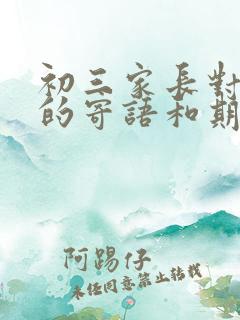 初三家長對
的寄語和期
阿踢仔
未經同意禁止轉載